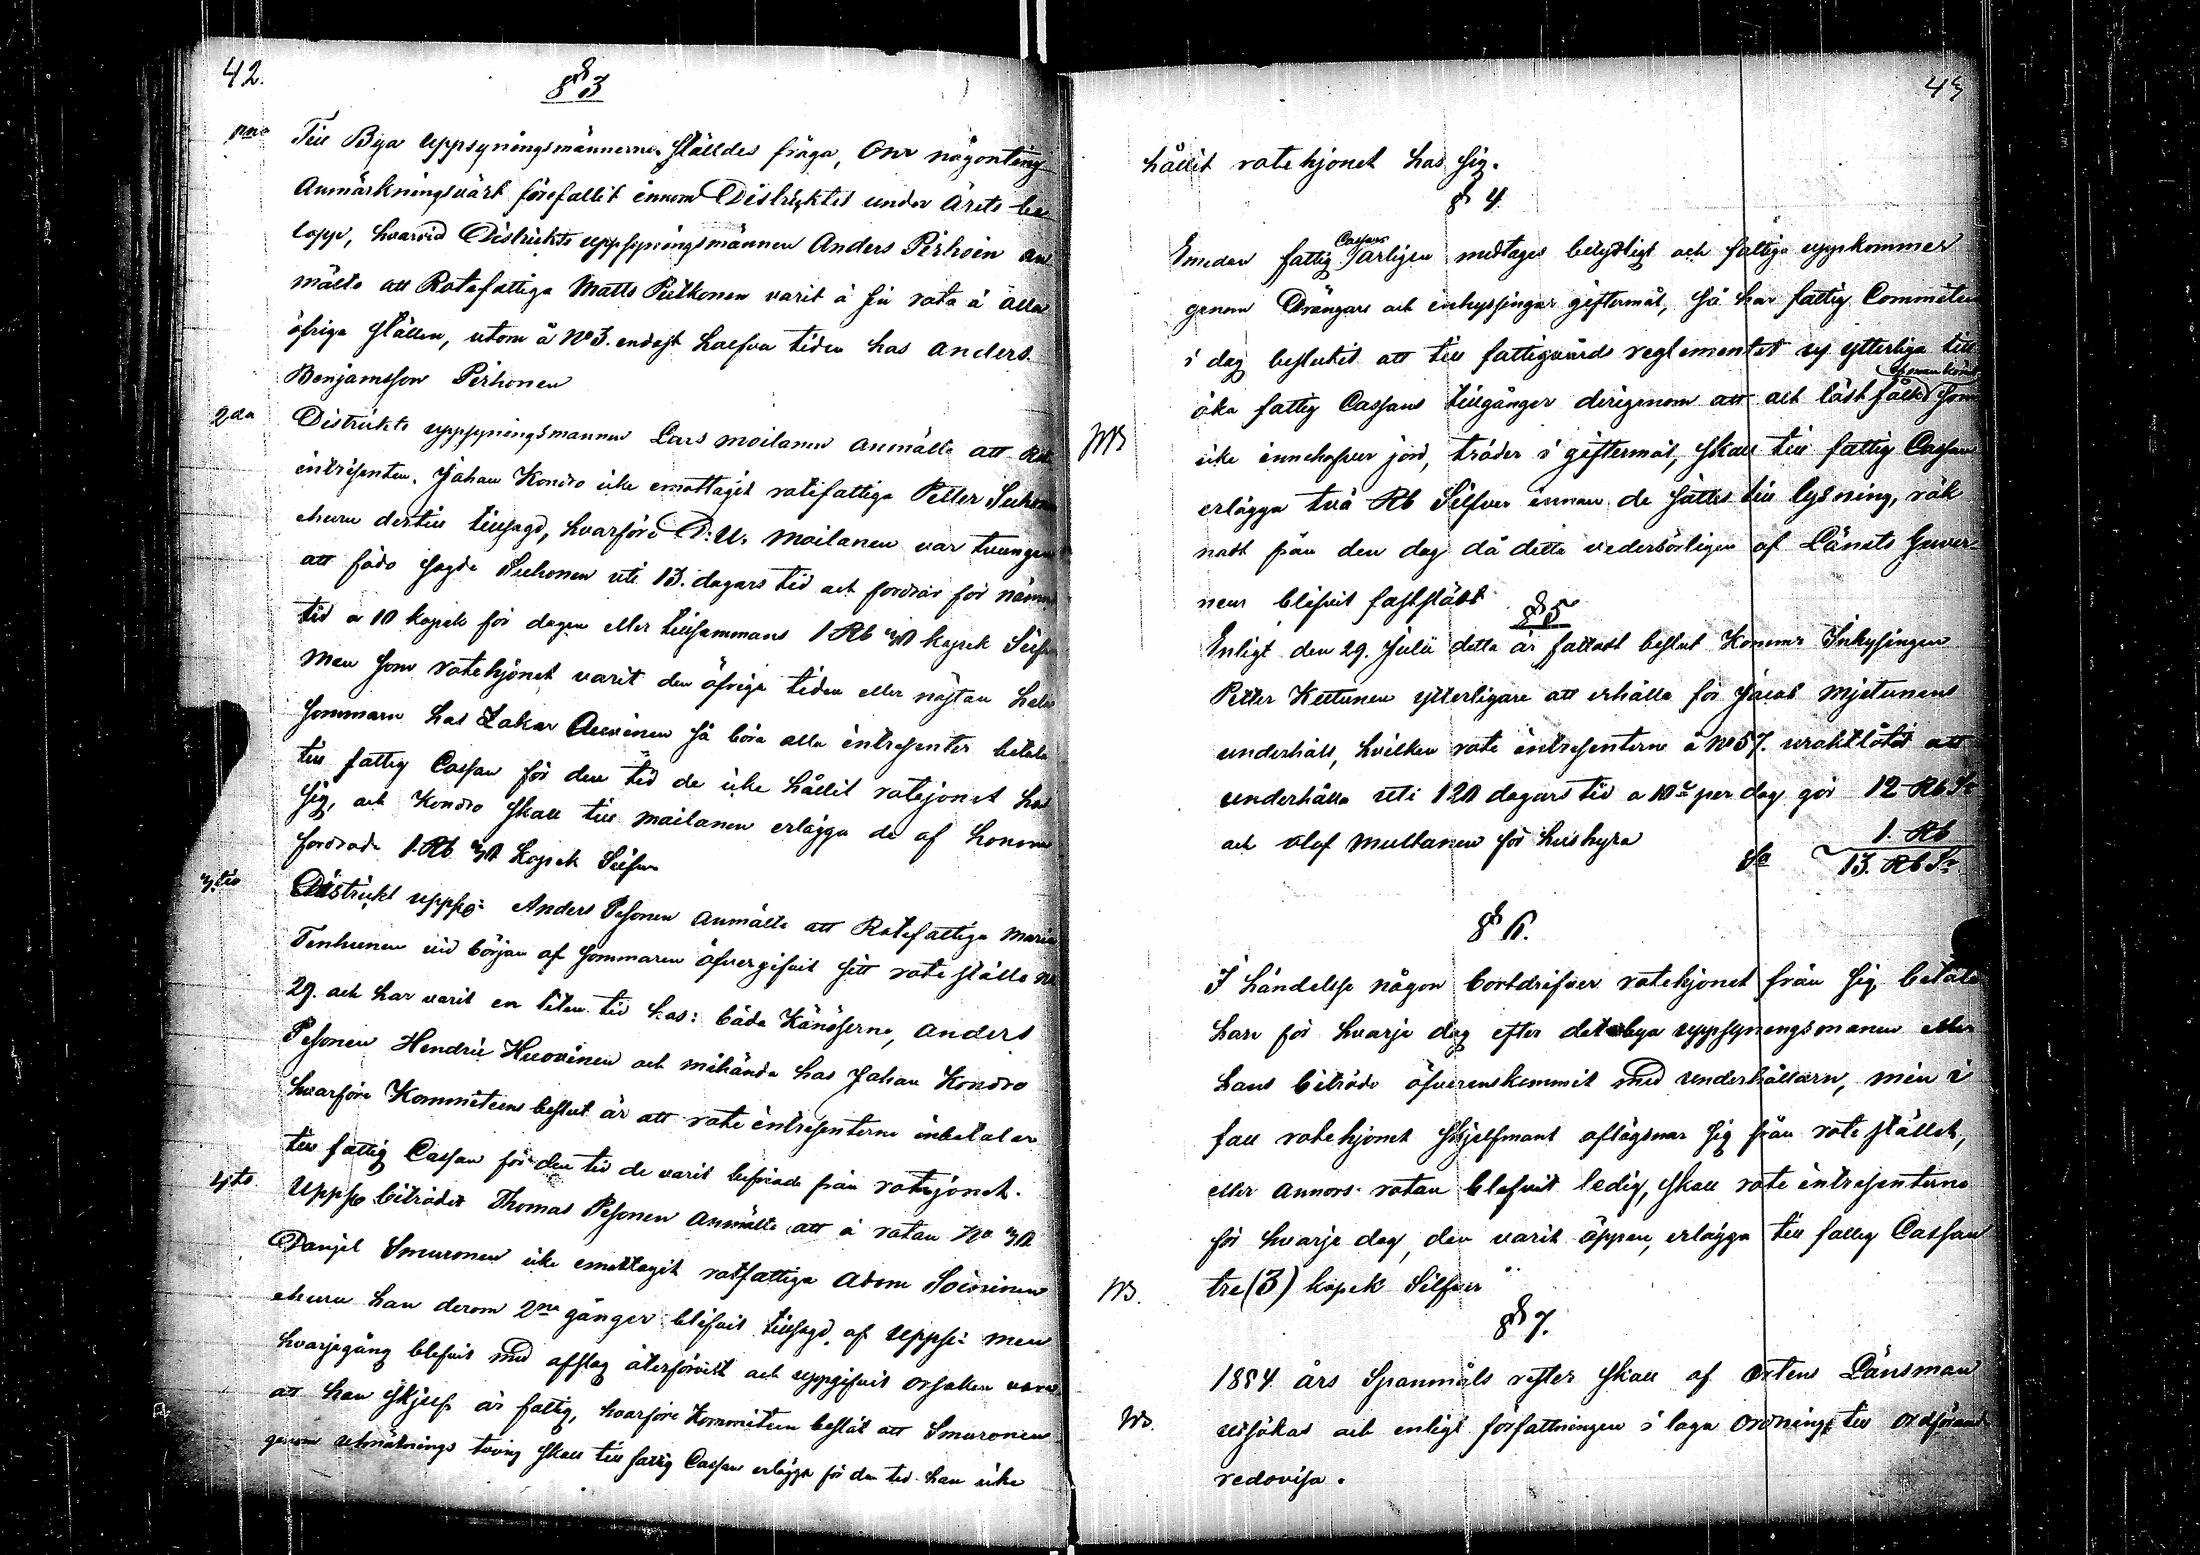 42.
§ 3
pmo Till Bya Uppsyningsmännerne ställdes fråga, Om någonting
Anmärkningsvärt förefallit innom Distriktet under Årets be-
lopp, hvarvid Distrikts uppsyningsmannen Anders Pirhoin an
mälte att Rotefattiga Matts Pulkonen varit å sin rota å alla
öfriga ställen, utom å No 3. endast halfva tiden hos Anders
Benjamsson Pirhonen
2do Distrikts uppsyningsmannen Lars Moilanen anmälte att Rote
intressenten, Johan Kondro icke emottagit rotefattiga Petter Suhonen
ehuru dertill tillsagd, hvarföre D: U: Moilanen var tvungen
att föda sagde Suhonen uti 13. dagars tid och fordrar för nämnde
tid a 10 kopek för dagen eller tillsammans 1 Rb 30 kopek Silfver
men som rotehjonet varit den öfriga tiden eller nästan hela
sommarn hos Zakar Auvinen så böra alla intressenter betala
till fattig Cassan för den tid de icke hållit rotejonet hos
sig, och Kondro skall till Moilanen erlägga de af honom
fordrade 1. Rb 30 Kopek Silfver
3tio Distrikt uppse: Anders Pesonen anmälte att Rotefattiga Maria
Tenhunen vid början af sommaren öfvergifvit sitt rote ställe No
29. och har varit en liten tid hos: båda Känösserne, Anders
Pesonen Hendric Huovinen och möhända hos Johan Kondro
hvarföre Kommiteens beslut är att rote intressenterne inbetalar
till fattig Cassan för den tid de varit befriade från rotejonet.
4to Uppse biträdet Thomas Pesonen anmälte att å rotan No 30
Danjel Smuronen icke emottagit rotfattiga Adam Soininen
ehuru han derom 2ne gånger blifvit tillsagd, af Uppse: men
hvarjegång blifvit med afslag återförvist och uppgifvit orsaken vara
att han skjelf är fattig, hvarföre Kommiteen beslöt att Smuronen
genom utmätnings tvång skall till fattig Cassan erlägga för den tid han icke
43
hållit rotehjonet hos sig.
§ 4
Emedan fattig Cassans årligen medtages betydligt och fattiga uppkommer
genom Drängars och inhyssingar giftermål, så har fattig Commiteen
i dag beslutit att till fattigvårds reglementet ny ytterliga till
öka fattig Cassans tillgånger derigenom att alt löst fålk som
icke innehafver jord, träder i giftermål, skall till fattig Cassan
erlägga två Rb Silfver innan de sättes till lysning, räk
nadt från den dag då detta vederbörligen af Länets Guver-
neur blifvit fastställt.
§ 5
Enligt den 29. Julii detta år fattadt beslut Kommer Inhysingen
Petter Kettunen ytterligare att erhålla för Jacob Mjetunens
underhåll, hvilken rote intressenterne å No 57. uraktlåtit att
underhålla uti 120 dagars tid a 10 k per dag gör 12 Rb Sr
och Olof Multanen för hushyra 1. Rb
Sa 13. Rb Sr
§ 6.
I händelse någon bortdrifver rotehjonet från sig betale
han för hvarje dag efter det bya uppsyningsmanen eller
hans biträde öfverenskommit med underhållarn, men i
fall rotehjonet skjelfmant aflägsnar sig från rote stället,
eller annors rotan blefvit ledig, skall rote intressenterne
för hvarje dag, den varit öppen, erlägga till fattig Cassan
tre (3) kopek Silfver
§ 7.
1854 års Spannmåls rester skall af ortens Länsman
utsökas och enligt författningen i laga Ordning till Ordförand
redovisa.